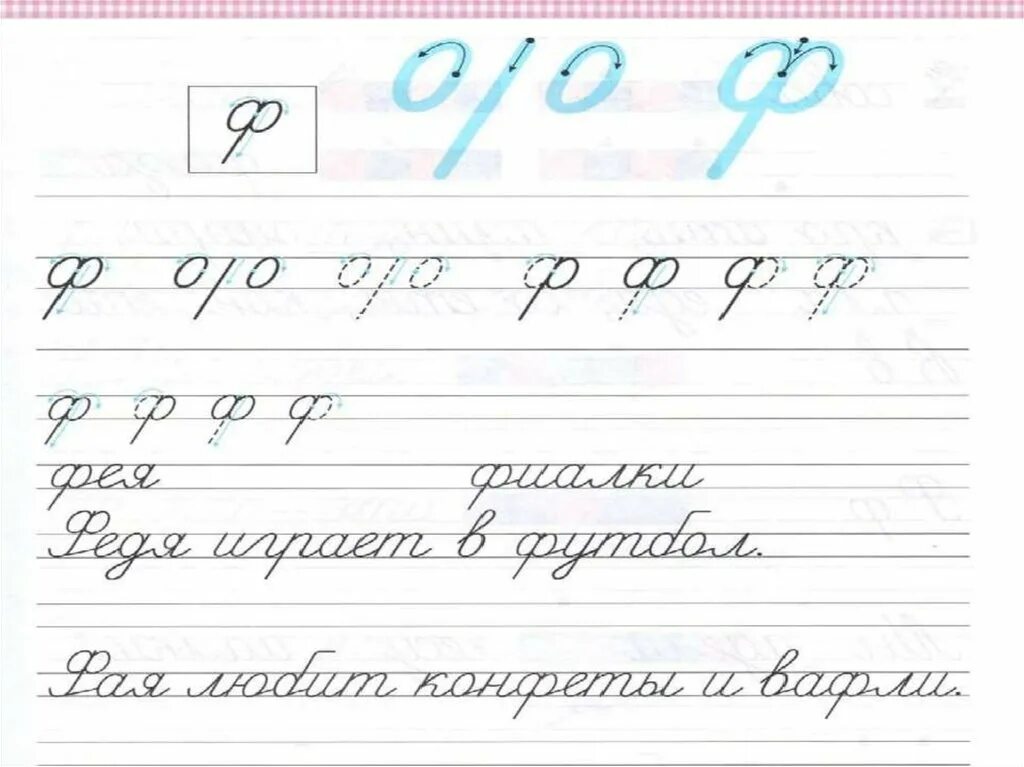 ф
о / о ф
ф о/о о/о ф ф ф ф
ф ф ф ф
фея фиалки
Федя играет в футбол.
Фая любит конфеты и вафли.